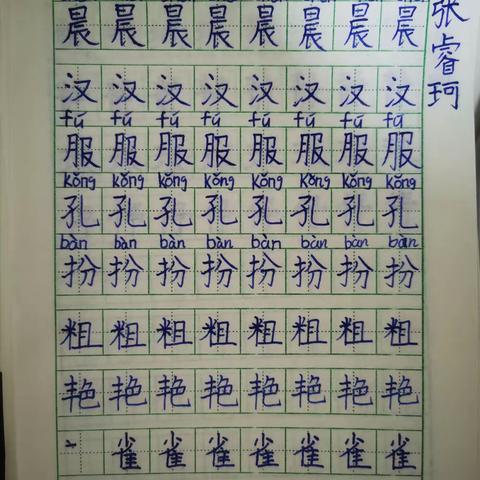 晨 晨 晨 晨 晨 晨 晨 晨
汉 汉 汉 汉 汉 汉 汉 汉
fú fú fú fú fú fú fú fú
服 服 服 服 服 服 服 服
kǒng kǒng kǒng kǒng kǒng kǒng kǒng kǒng
孔 孔 孔 孔 孔 孔 孔 孔
bàn bàn bàn bàn bàn bàn bàn bàn
扮 扮 扮 扮 扮 扮 扮 扮
粗 粗 粗 粗 粗 粗 粗 粗
艳 艳 艳 艳 艳 艳 艳 艳
雀 雀 雀 雀 雀 雀 雀
张睿珂